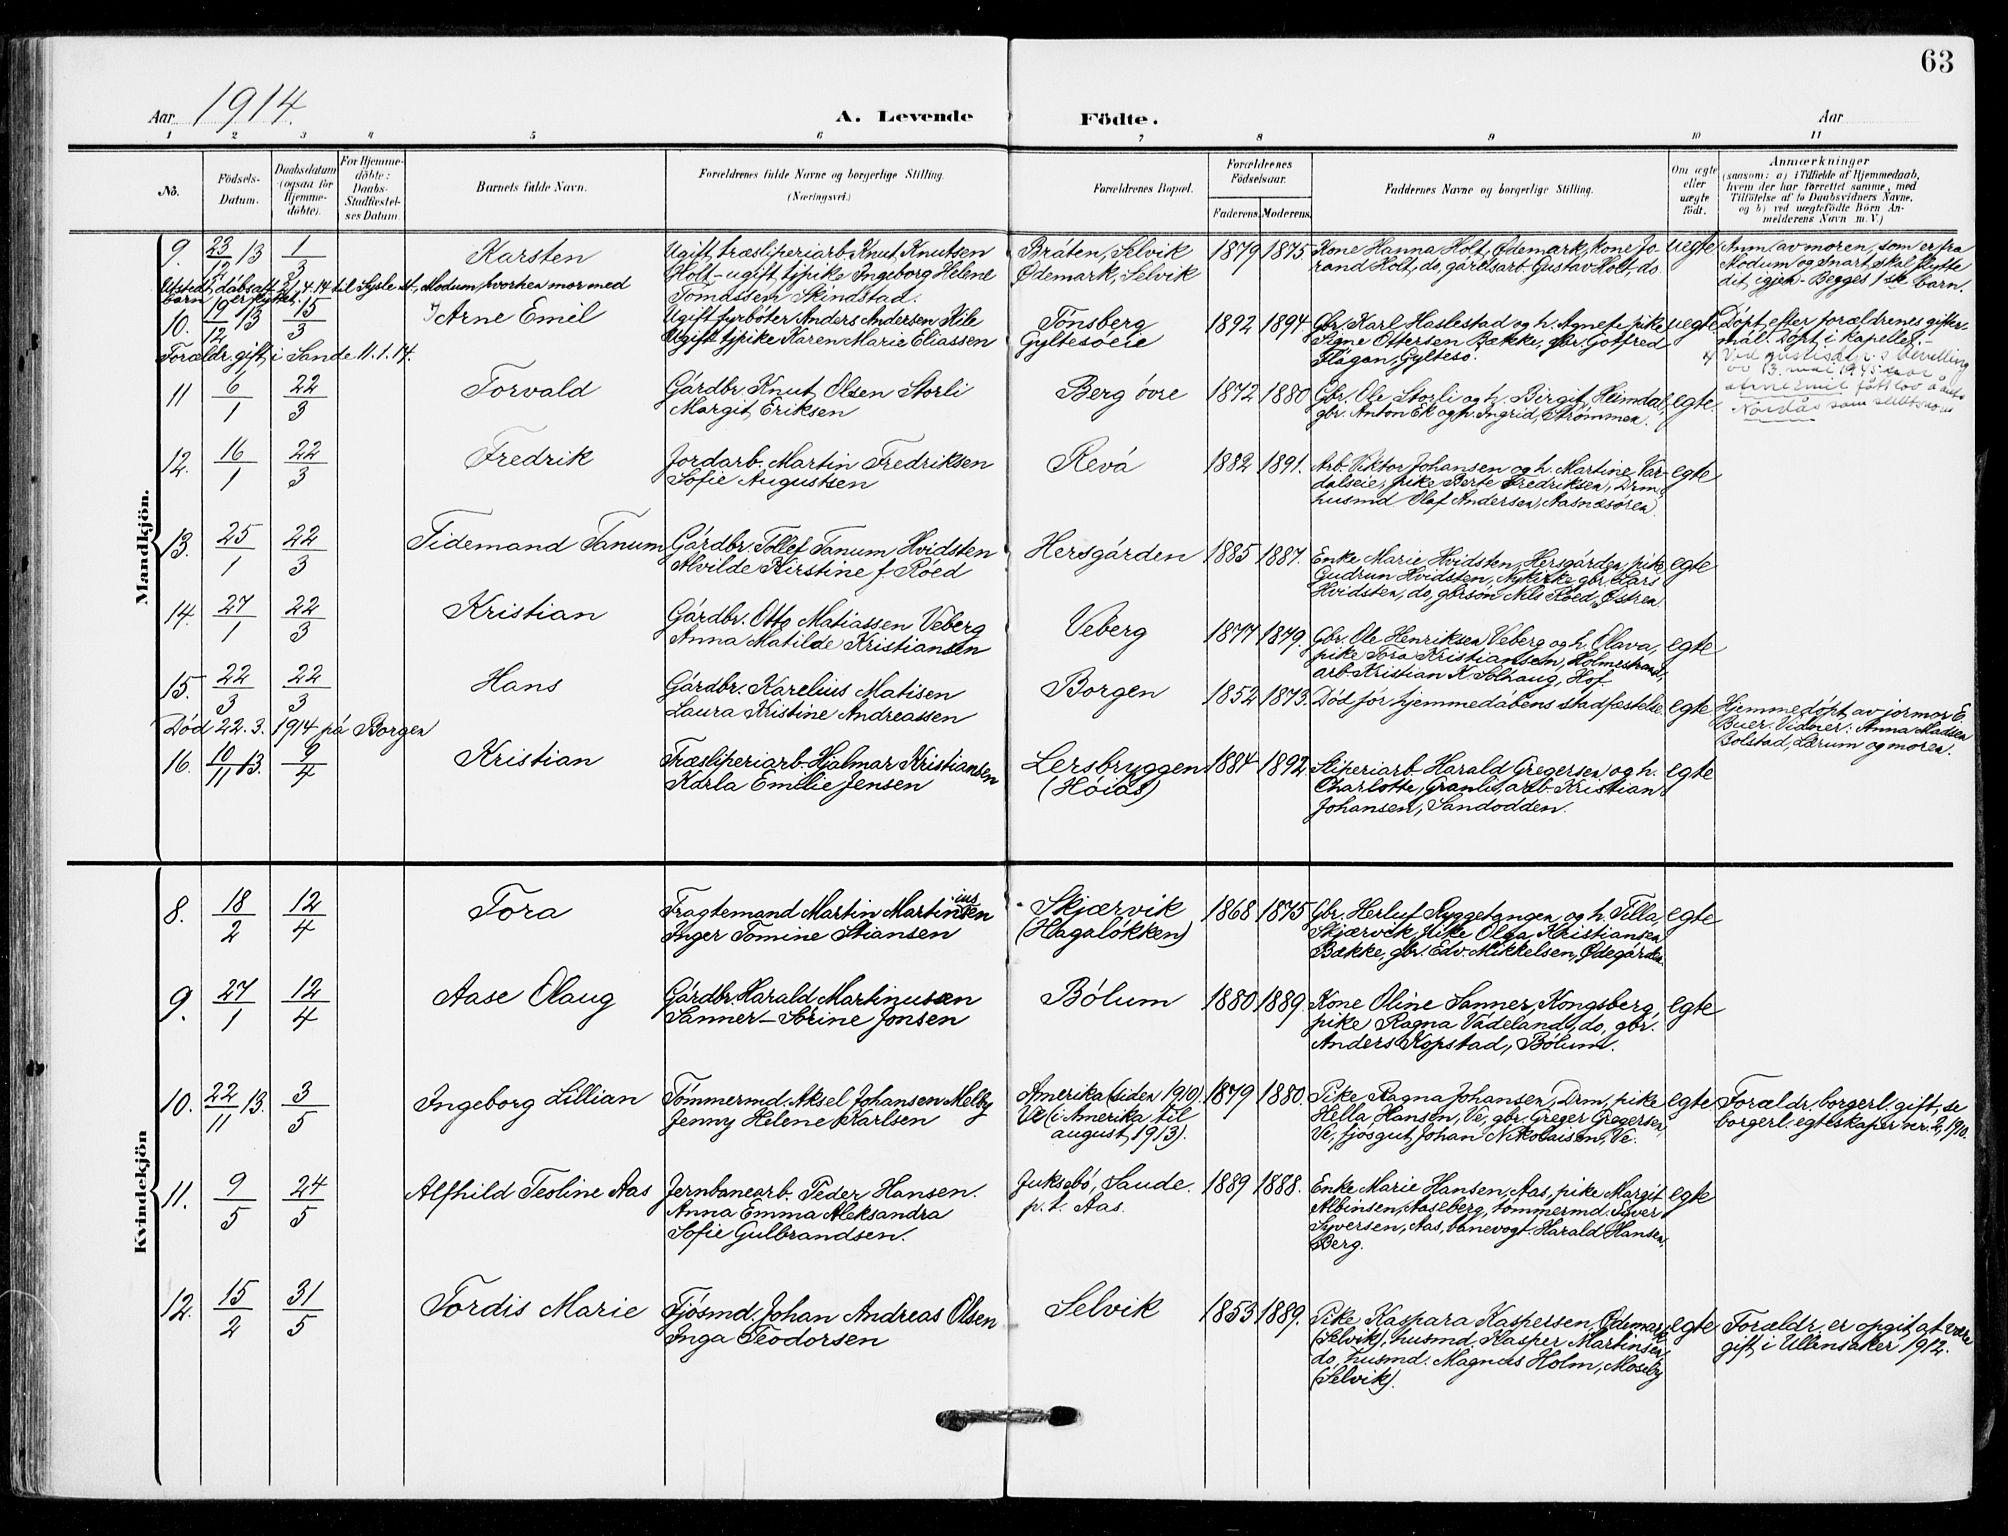 63
Aar 1914.
A. Levende Födte.
Aar
1 2 3 4 5 6 7 8 9 10 11
No.
Födsels-Datum.
Daabsdatum (ogsaa for Hjemmedöbte).
For Hjemmedöbte: Daabs-Stadfæstelses Datum.
Barnets fulde Navn.
Forældrenes fulde Navne og borgerlige Stilling. (Næringsvei.)
Forældrenes Bopæl.
Forældrenes Födselsaar.
Faderens. Moderens.
Faddernes Navne og borgerlige Stilling.
Om ægte eller uægte födt.
Anmærkninger
(saasom: a) i Tilfælde af Hjemmedaab,
hvem der har forrettet samme, med
Tilföielse af to Daabsvidners Navne,
og b) ved uægtefödte Börn An-
melderens Navn m. V.)
Mandkjön.
9. 23/12 13 1/3 Karsten
Ugift træsliperiarb. Knut Knutsen
Holt - ugift tjpike Ingeborg Helene
Tomassen Skindstad.
Bråten, Selvik
Ødemark, Selvik
1879 1875
Kone Hanna Holt, Ødemark, kone Jo-
rand Holt, do, gårdsarb. Gustav Holt, do.
uegte
Anm. av moren, som er fra
Modum og snart skal flytte
dit igjen - Begges 1ste barn.
Utstedt dåbsatt. 21.4.14 til Sysle st., Modum, hvorhen mor med
barn er flyttet.
10. 19/12 13 15/3 Arne Emil
Ugift fyrbøter Anders Andersen Kile
Ugift tjpike Karen Marie Eliassen
Tønsberg
Gyltesøeie
1892 1894
Gbr. Karl Haslestad og h. Agnete, pike
Signe Ottersen Bække, gbr. Gotfred
Hågan, Gyltesø.
uegte
Døpt efter forældrenes gifter-
mål. Døpt i kapellet.
Forældr. gift i Sande 11.1.14.
11 6/1 22/3 Torvald
Gårdbr. Knut Olsen Storli
Margit Eriksen
Berg øvre
1872 1880
Gbr. Ole Storli og h. Birgit, Heimdal,
gbr. Anton Ek og h. Ingrid, Strømmen.
egte.
12. 16/1 22/3 Fredrik
Jordarb. Martin Fredriksen
Sofie Augustsen
Revå
1882 1891.
Arb. Viktor Johansen og h. Martine, Var-
dalseie, pike Berte Fredriksen, Drm.,
husmd Olaf Andersen, Aasnæsøren.
egte
13. 25/1 22/3 Tidemand Tanum
Gårdbr. Tollef Tanum Hvidsten
Alvilde Kirstine f. Røed
Hersgården
1885 1887.
Enke Marie Hvidsten, Hersgården, pike
Gudrun Hvidsten, Nykirke, gbr. Lars
Hvidsten, do, gbrsøn Nils Røed, Østren.
egte
14. 27/1 22/3 Kristian
Gårdbr. Otto Matiassen Veberg
Anna Matilde Kristiansen
Veberg
1877 1879.
Gbr. Ole Henriksen Veberg og h. Olava,
pike Tora Kristiansen, Holmestrand,
arb. Kristian K. Solhaug, Hof.
egte
15. 22/3 22/3 Hans
Gårdbr. Karelius Matisen
Laura Kristine Andreassen
Borgen
1852 1873.
Død før hjemmedåbens stadfæstelse.
egte
Hjemmedøpt av jormor E.
Buer. Vidner: Anna Madsen
Bolstad, Lærum og moren.
Død 22.3. 1914 på Borgen
16. 10/11 13. 9/4 Kristian
Træsliperiarb. Hjalmar Kristiansen
Karla Emilie Jensen
Lersbryggen
(Høiås)
1884 1892.
Sliperiarb. Harald Gregersen og h.
Charlotte, Granli, arb. Kristian
Johansen, Sandodden.
egte
Kvindekjön
8. 18/2 12/4 Tora
Fragtemand Martin Martiniussen
Inger Tomine Stiansen
Skjærvik
(Hagaløkken)
1868 1875
Gbr. Herluf Ryggetangen og h. Tilla,
Skjærvik, pike Olga Kristiansen
Bække, gbr. Edv. Mikkelsen, Ødegården.
egte
9. 27/1 12/4 Aase Olaug
Gårdbr. Harald Martinusen
Sanner - Sørine Jonsen
Bølum
1880 1889.
Kone Oline Sanner, Kongsberg,
pike Ragna Vådeland, do, gbr.
Anders Kopstad, Bølum.
egte
10. 22/11 13. 3/5 Ingeborg Lillian
Tømmermd. Aksel Johansen Melby
Jenny Helene Karlsen
Amerika (siden 1910)
Ve (i Amerika til
august 1913).
1879 1880.
Pike Ragna Johansen, Drm, pike
Hella Hansen, Ve, gbr. Greger Gregersen,
Ve, fjøsgut Johan Nikolaisen, Ve.
egte
Forældr. borgerl. gift, se
borgerl. egteskaper nr. 2, 1910.
11. 9/5 24/5 Alfhild Teoline Aas
Jernbanearb. Peder Hansen.
Anna Emma Aleksandra
Sofie Gulbrandsen.
Juksebø, Saude.
p.t. Aas.
1889 1888.
Enke Marie Hansen, Aas, pike Margit
Albinsen, Aaseberg, tømmermd. Syver
Syversen, Aas, banevogt Harald Hansen,
Berg.
egte
12. 15/2 31/5 Tordis Marie
Fjøsmd. Johan Andreas Olsen
Inga Teodorsen
Selvik
1853 1889.
Pike Kaspara Kaspersen, Ødemark
(Selvik), husmd. Kasper Martinsen,
do, husmd. Magnus Holm, Moseby
(Selvik).
egte
Forældr. er opgit at være
gift i Ullensaker 1912.